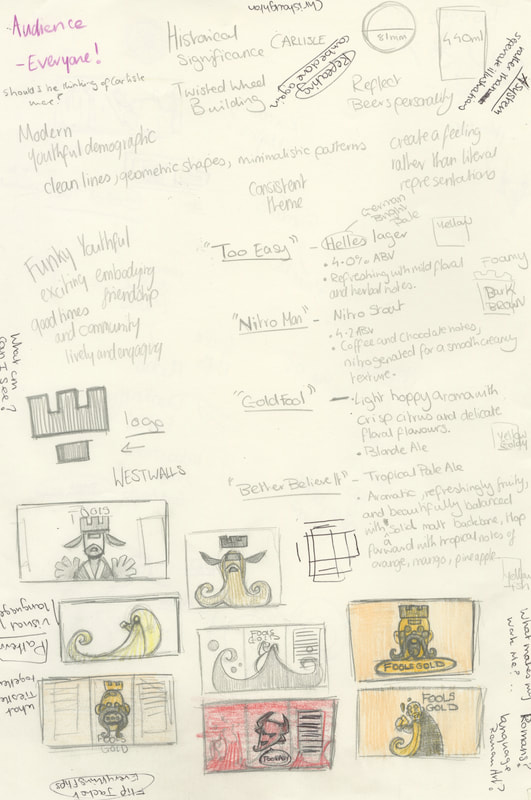 Audience
- Everyone!
Should be thinking of Carlisle
more?
Historical
Significance
CARLISLE
81mm
440ml
Twisted Wheel
Building
can be done again
Reflect
Beers personality
A system
rather than
Modern
youthful demographic
clean lines, geometric shapes, minimalistic patterns
Consistent
theme
create a feeling
rather than literal
representations
Funky Youthful
exciting embodying
friendship
good times
and community
lively and engaging
German
Bright
Pale
"Too Easy" - Helles lager
• 4.0% ABV
• Refreshing with mild floral
and herbal notes.
yellow
Foamy
Dark
Brown
"Nitro Man" - Nitro Stout
• 4.2 ABV
• Coffee and Chocolate notes,
nitrogenated for a smooth creamy
texture.
"Gold Fool" - Light hoppy aroma with
crisp citrus and delicate
floral flavours.
• Blonde Ale
yellow
What can
I see?
logo
WESTWALLS
"Better Believe It" - Tropical Pale Ale
• Aromatic, refreshingly fruity,
and beautifully balanced
with a solid malt backbone, Hop
forward with tropical notes of
orange, mango, pineapple
yellow
visual
language
Pattern
what
ties the
together
FOOLS
GOLD
FOOLS GOLD
FOOLS
GOLD
what makes my
work me?..
Romans?
language
Roman Art?
Flip Jacket
Everything Flips